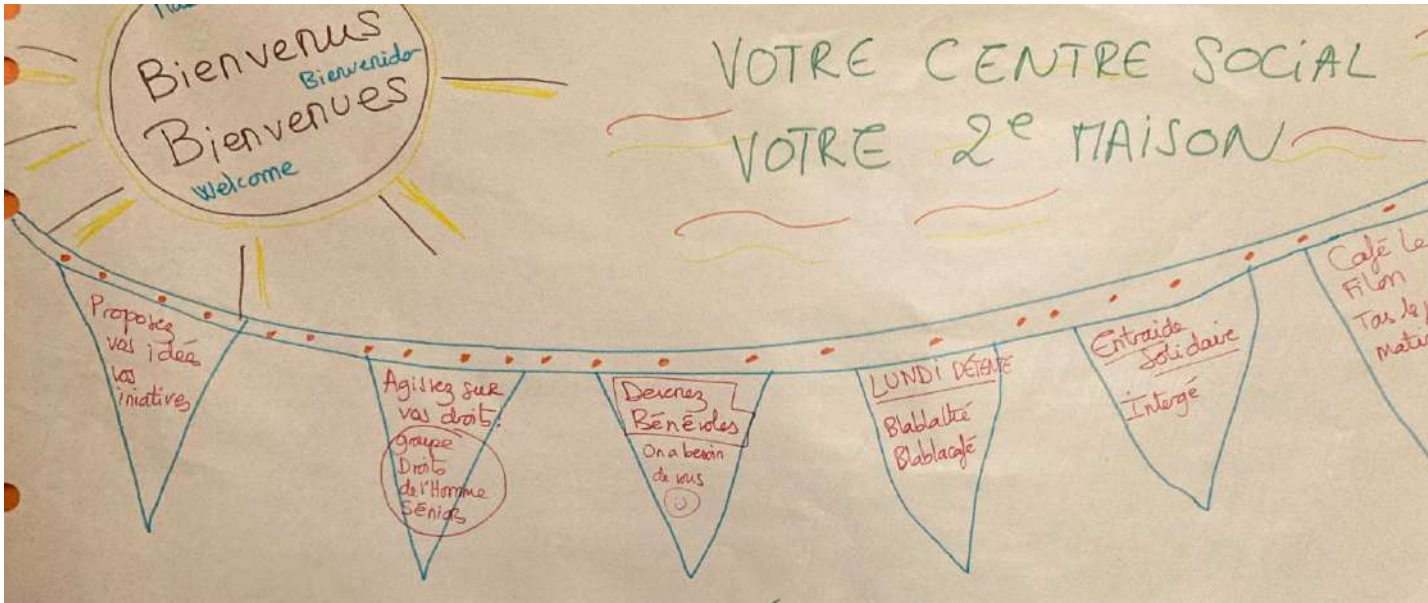 Bienvenus
Bienvenido
Bienvenues
Welcome
VOTRE CENTRE SOCiAL
VOTRE 2e MAiSON
Proposez
vos idées
vos
iniatives
Agissez sur
vos droit.
groupe
Droits
de l'Homme
SÉniors
Devenez
Bénévoles
On a besoin
de vous
LUNDi DÉTENTE
Blablathé
Blablacafé
Entraide
Solidaire
Intergé
Café Le
Filon